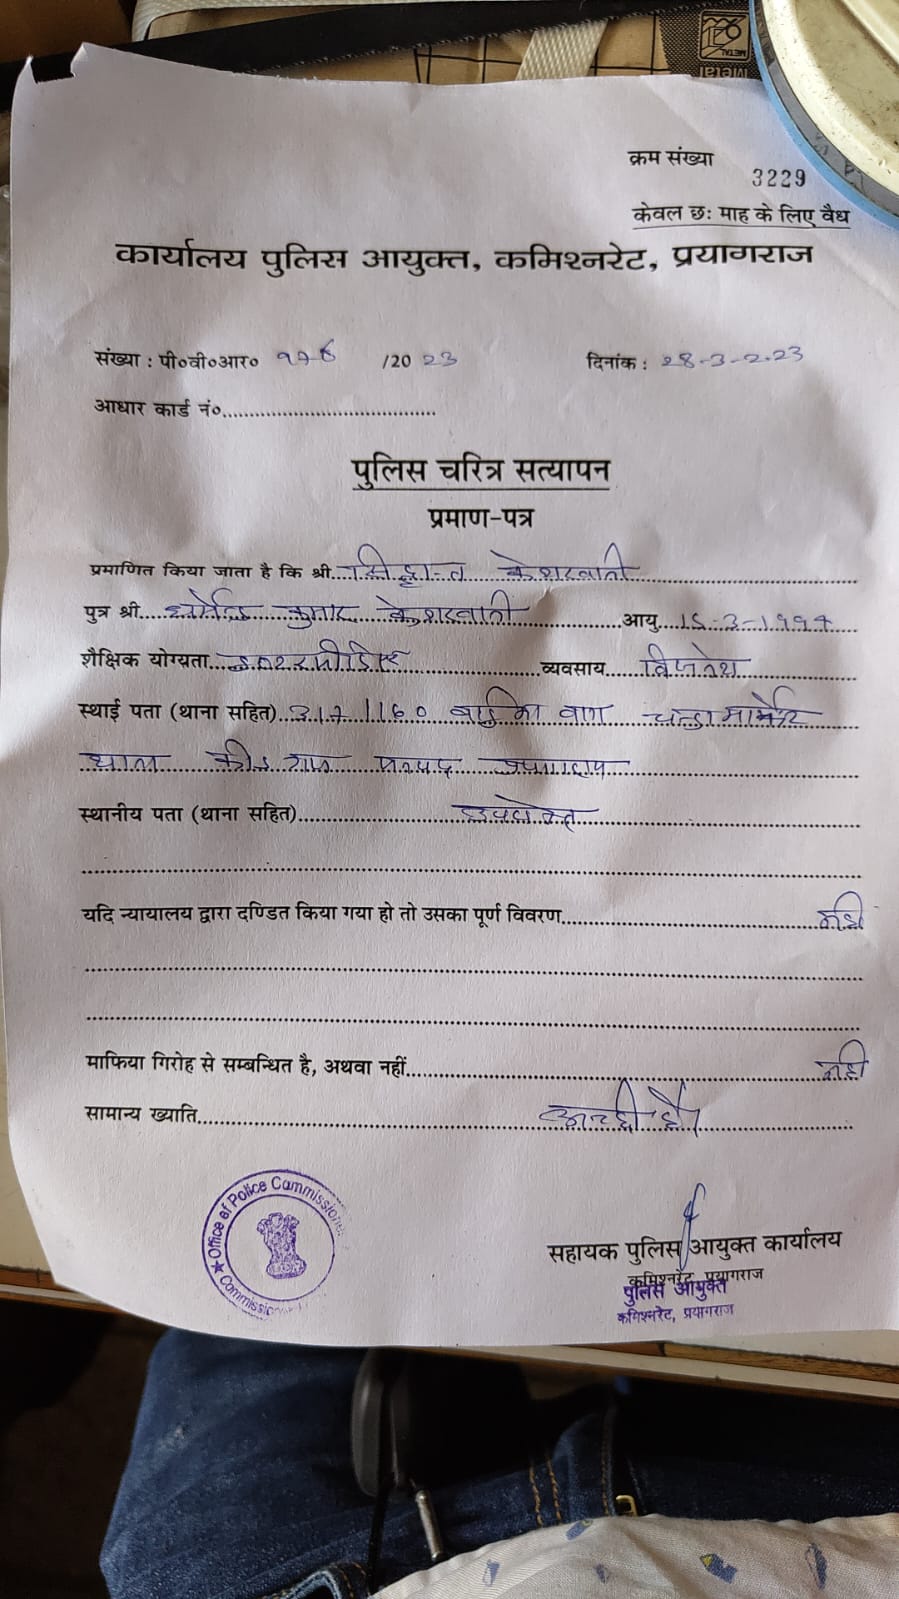 क्रम संख्या
3229
केवल छः माह के लिए वैध
कार्यालय पुलिस आयुक्त, कमिश्नरेट, प्रयागराज
संख्या : पी०वी०आर० /20 23 दिनांक : 28-3-2023
आधार कार्ड नं०
पुलिस चरित्र सत्यापन
प्रमाण-पत्र
प्रमाणित किया जाता है कि श्री सिद्धान्त केशरवानी
पुत्र श्री धर्मेन्द्र कुमार केशरवानी आयु 15-3-1997
शैक्षिक योग्यता इण्टरमीडिएट व्यवसाय
स्थाई पता (थाना सहित) 317/160
थाना कीडगंज जनपद प्रयागराज
स्थानीय पता (थाना सहित) उपरोक्त
यदि न्यायालय द्वारा दण्डित किया गया हो तो उसका पूर्ण विवरण नही
माफिया गिरोह से सम्बन्धित है, अथवा नहीं नही
सामान्य ख्याति अच्छी है।
Office of Police Commissioner
सहायक पुलिस आयुक्त कार्यालय
कमिश्नरेट, प्रयागराज
पुलिस आयुक्त
कमिश्नरेट, प्रयागराज